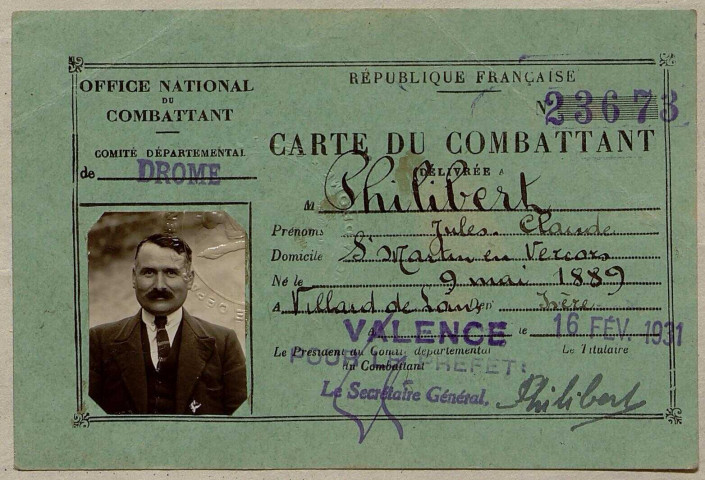 OFFICE NATIONAL
DU
COMBATTANT
COMITÉ DÉPARTEMENTAL
de DROME
RÉPUBLIQUE FRANÇAISE
N 23673
CARTE DU COMBATTANT
DÉLIVRÉE A
M Philibert
Prénoms Jules Claude
Domicile St Martin en Vercors
Né le 9 mai 1889
A Villard de Lans Isère
A VALENCE le 16 FÉV. 1931
Le Président du Comité départemental
du Combattant
Le Titulaire
POUR LE PREFET:
Le Secrétaire Général,
Philibert